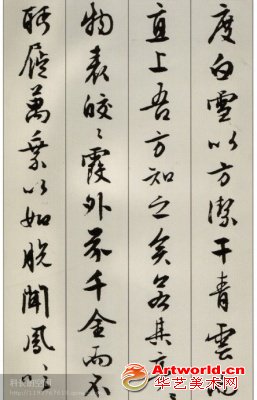 度白雪以方潔干青雲而
直上吾方知之矣若其亭々
物表皎々霞外芥千金而不
眄屣萬乘以如脫聞鳳吹
Artworld.cn
华艺美术网